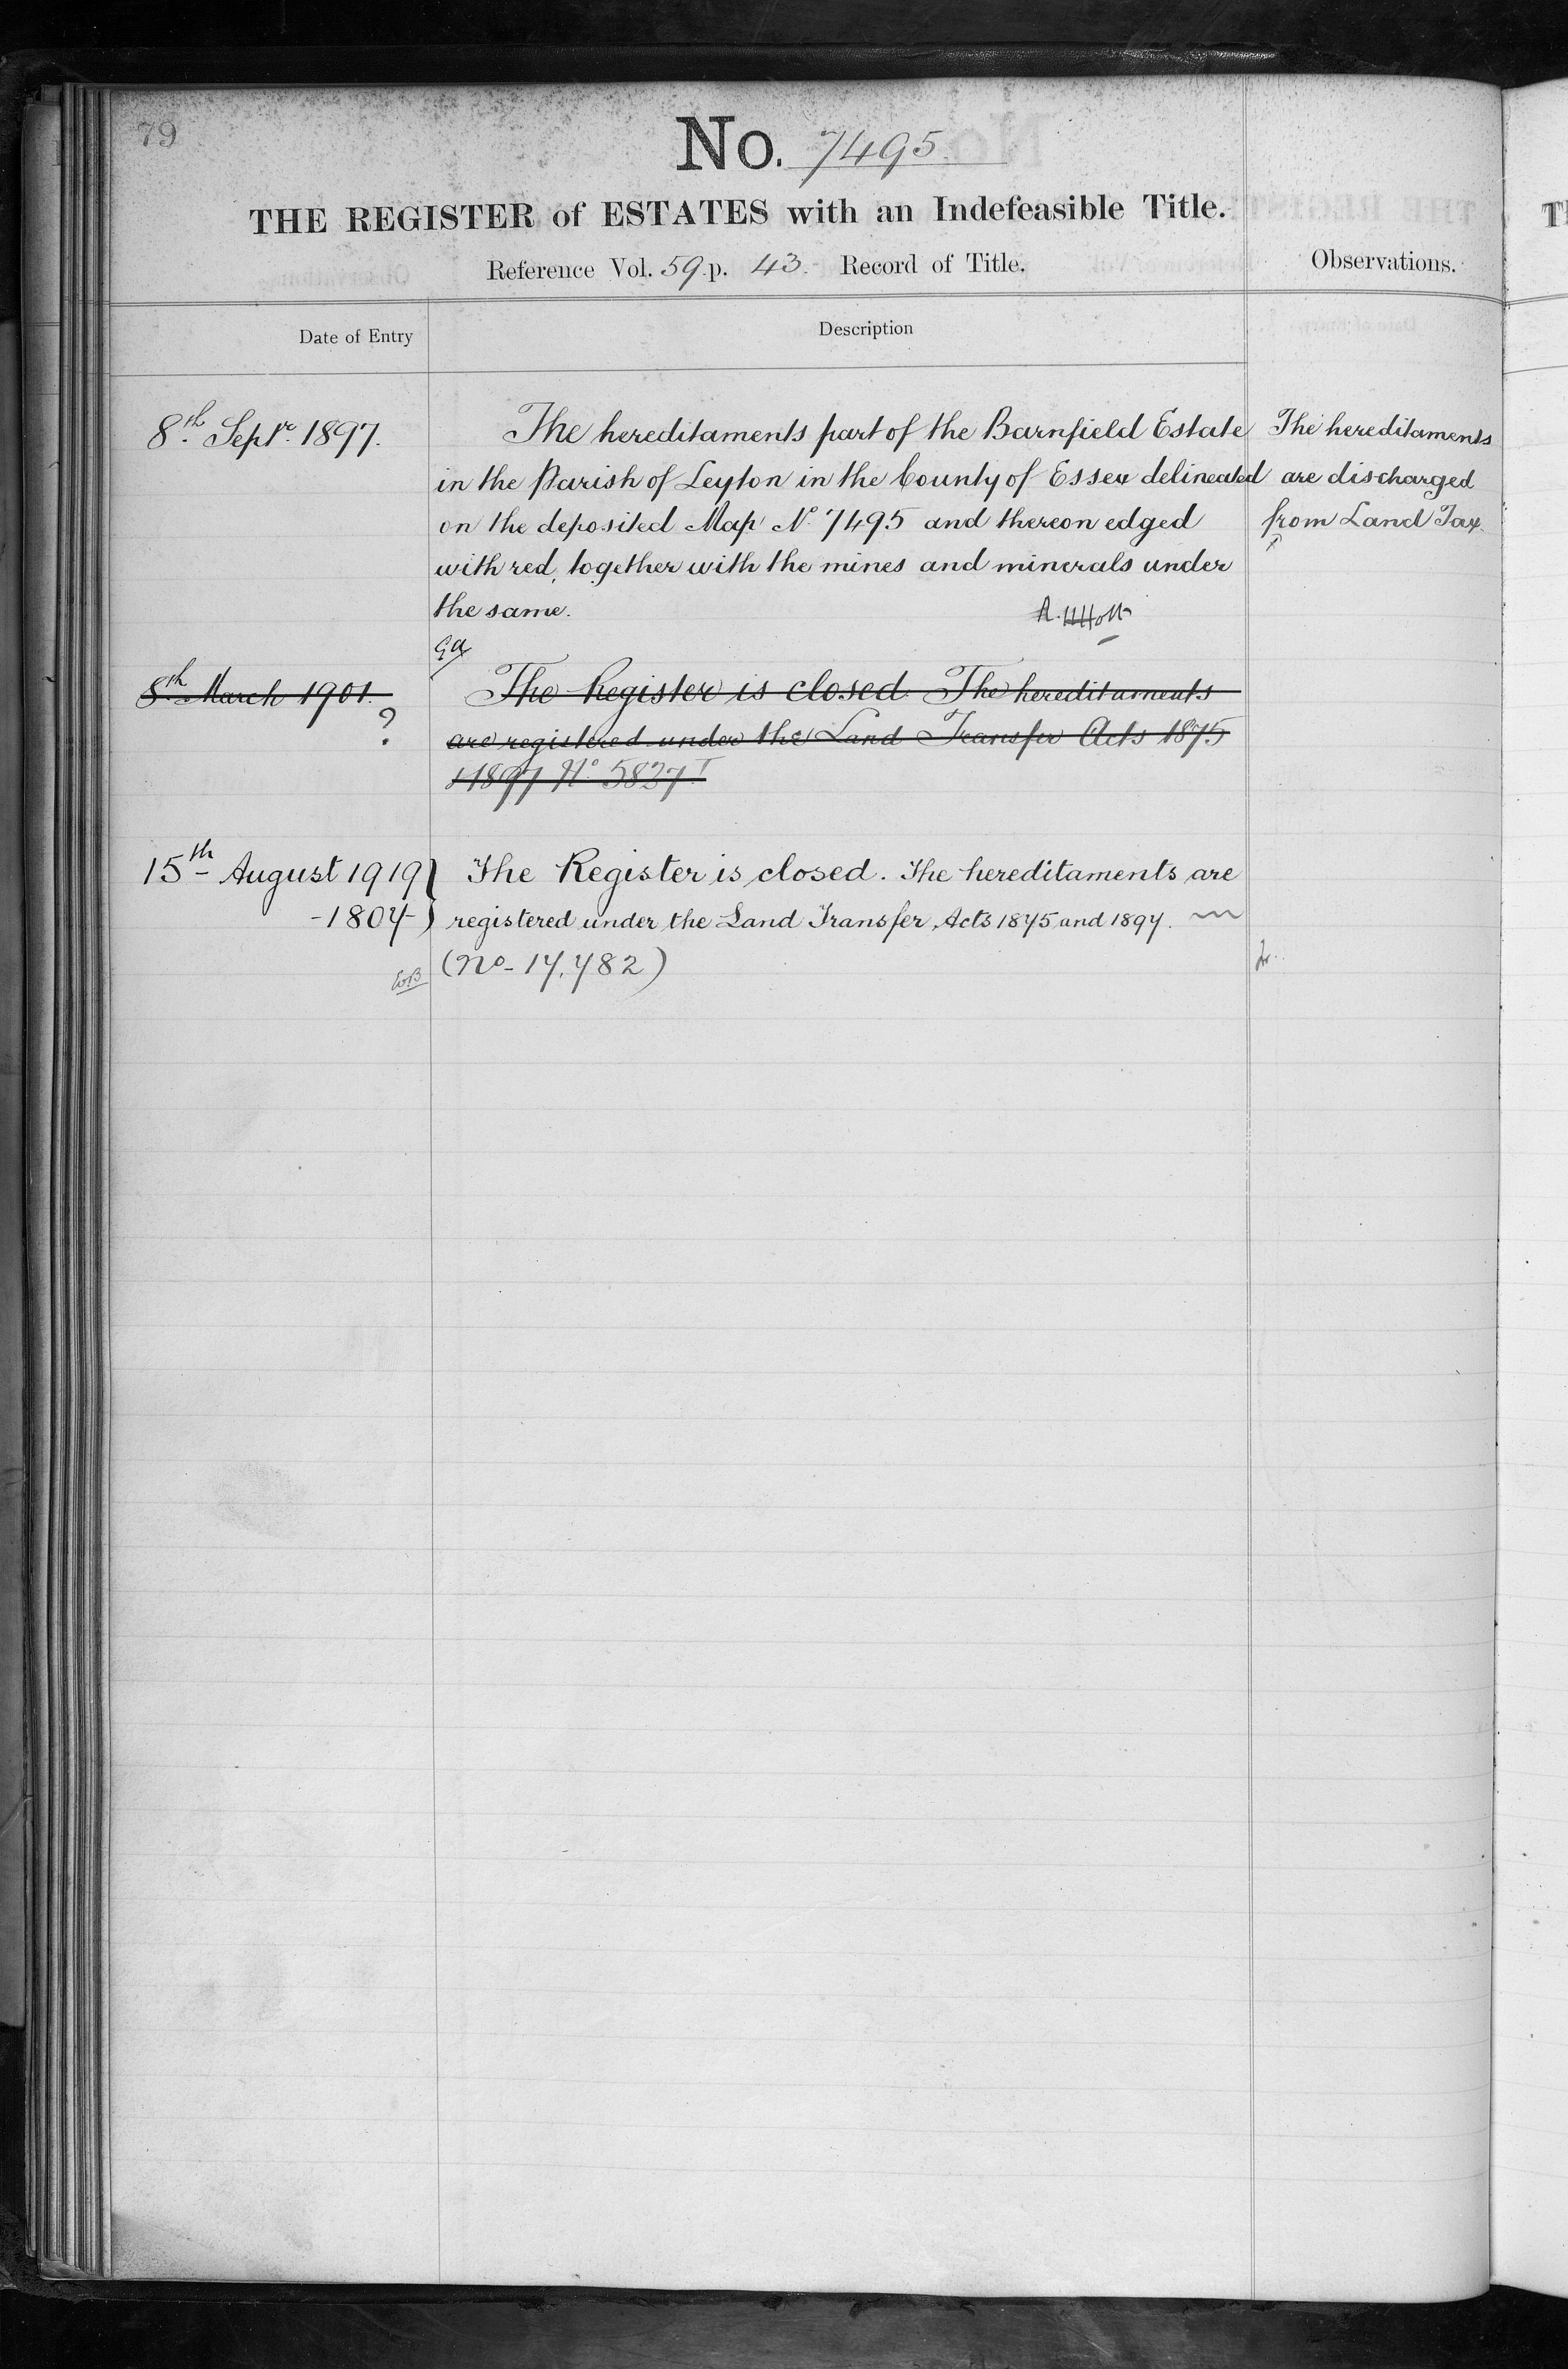 79
No. 7495.
THE REGISTER of ESTATES with an Indefeasible Title.
Reference Vol. 59. p. 43. Record of Title.
Observations.
Date of Entry
Description
8th Septr. 1897.
The hereditaments part of the Barnfield Estate
in the Parish of Leyton in the County of Essex delineated
on the deposited Map No. 7495 and thereon edged
with red, together with the mines and minerals under
the same.
The hereditaments
are discharged
from Land Tax.
8th March 1901.
?
The Register is closed. The hereditaments
are registered under the Land Transfer Acts 1875
& 1897 No. 5827 T
15th August 1919
-1807-
The Register is closed. The hereditaments are
registered under the Land Transfer Acts 1875 and 1897.
(No- 17,782)